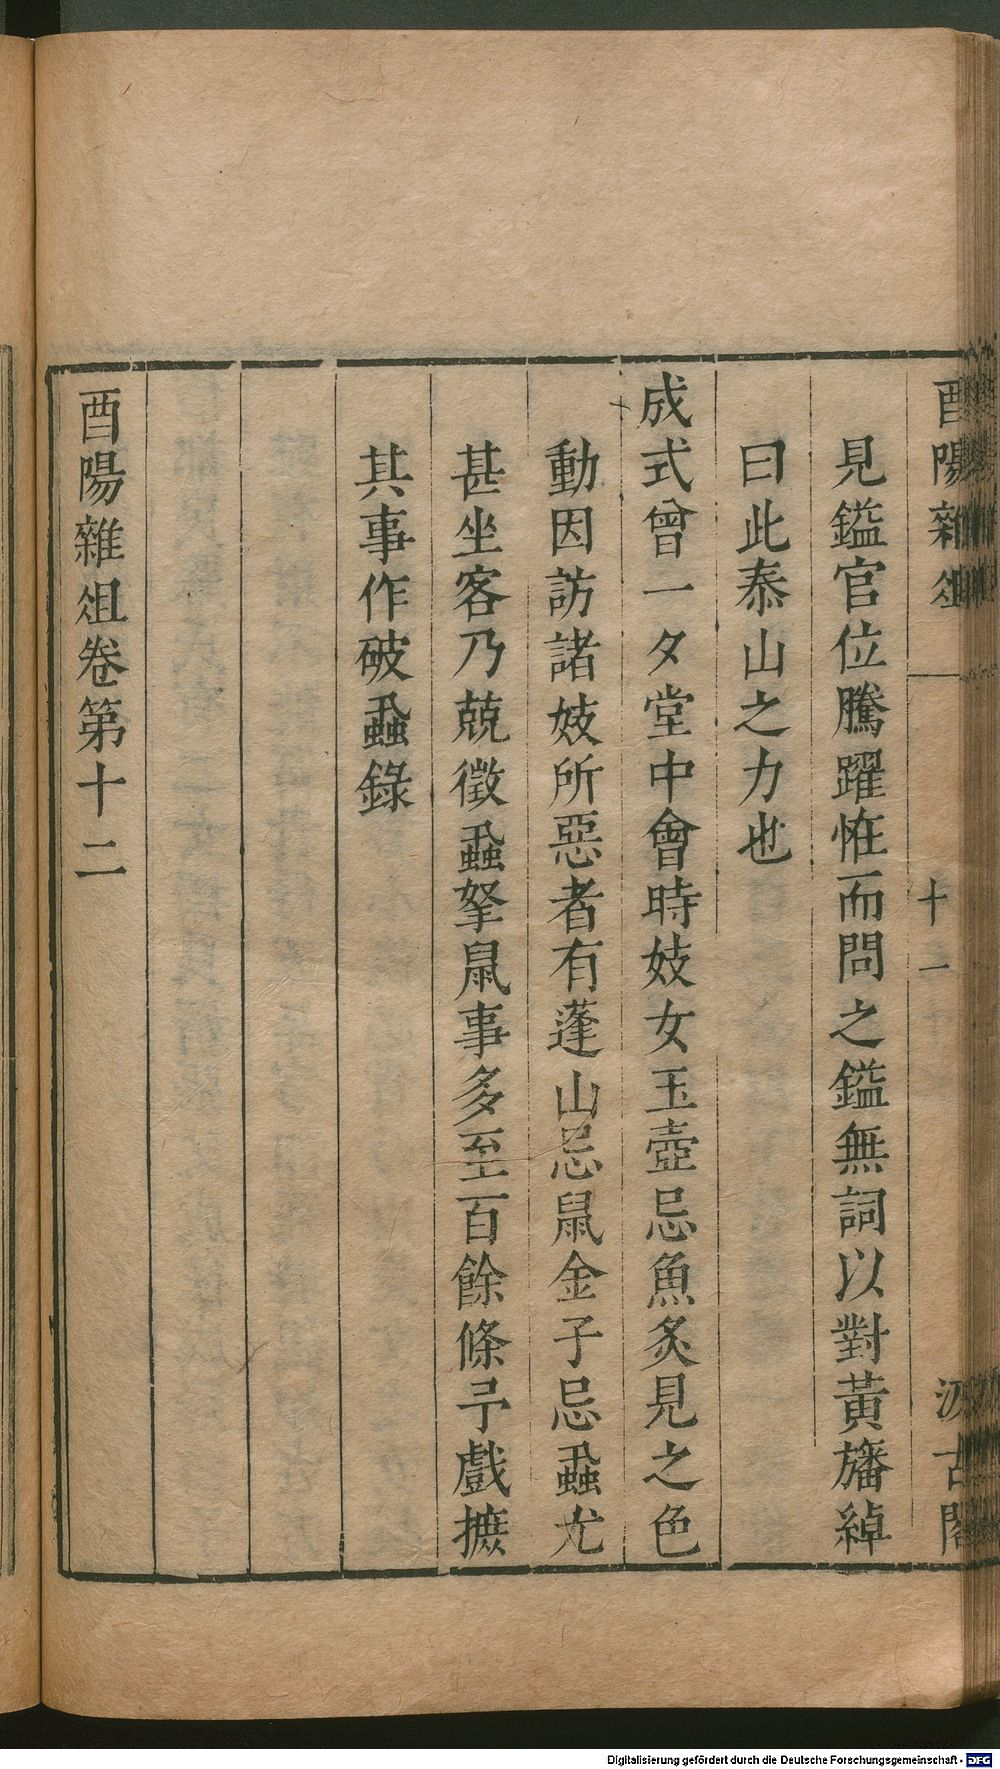 酉陽雜俎
十一
汲古閣
見鎰官位騰躍恠而問之鎰無詞以對黃旛綽
曰此泰山之力也
成式曾一夕堂中會時妓女玉壺忌魚炙見之色
動因訪諸妓所惡者有蓬山忌鼠金子忌蝨尤
甚坐客乃兢徵蝨拏鼠事多至百餘條予戲摭
其事作破蝨錄
酉陽雜俎卷第十二
Digitalisierung gefördert durch die Deutsche Forschungsgemeinschaft - DFG